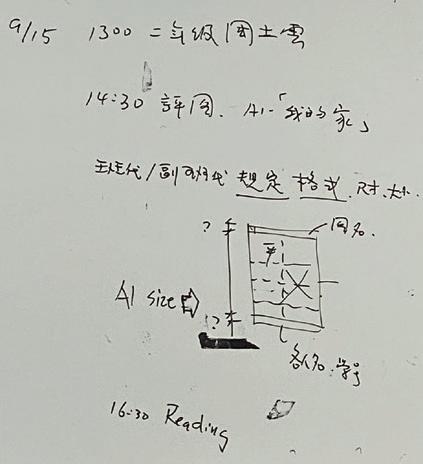 9/15 1300 二年級 国土雲
14:30 評図. A1-「我的家」
班代/副班代 規定 格式.尺寸.大小.
? 图名.
A1 size
?
各人名.学号
16:30 Reading